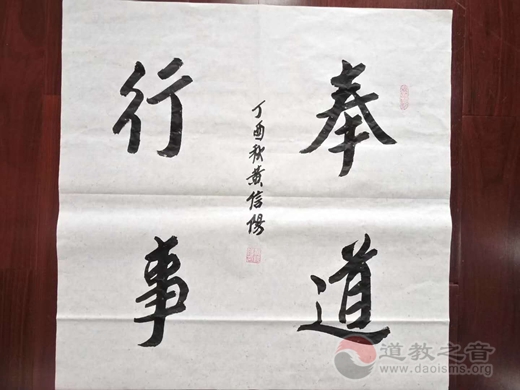 奉道
行事
丁酉秋黄信阳
道教之音
www.daoisms.org